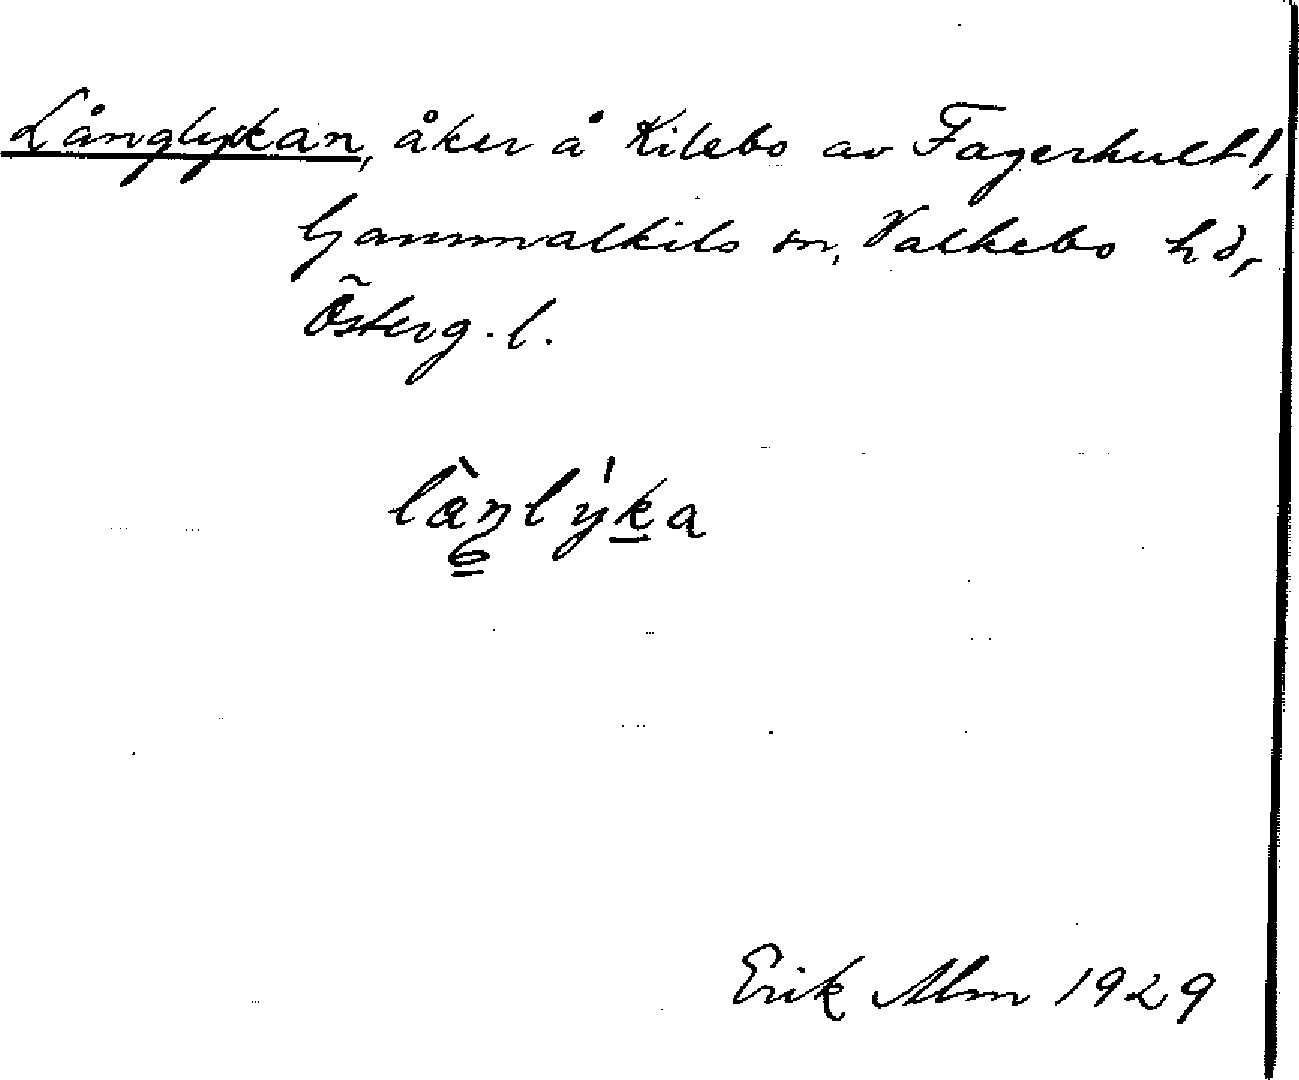 Långlykan, åker å Kilebo av Fagerhult!,
Gammalkils sn, Valkebo hd,
Österg. l.
Erik Alm 1929